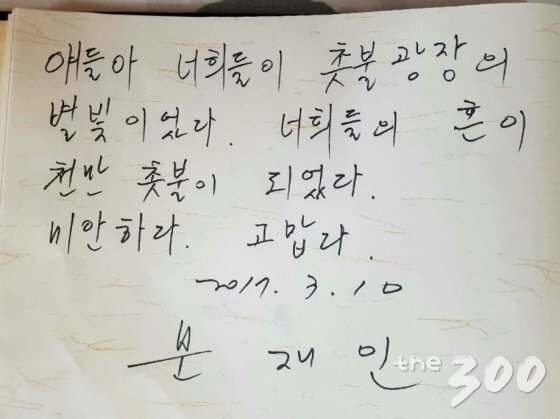 얘들아 너희들이 촛불광장의
별빛이었다. 너희들의 혼이
천만 촛불이 되었다.
미안하다. 고맙다.
2017. 3. 10
문 재 인
the 300